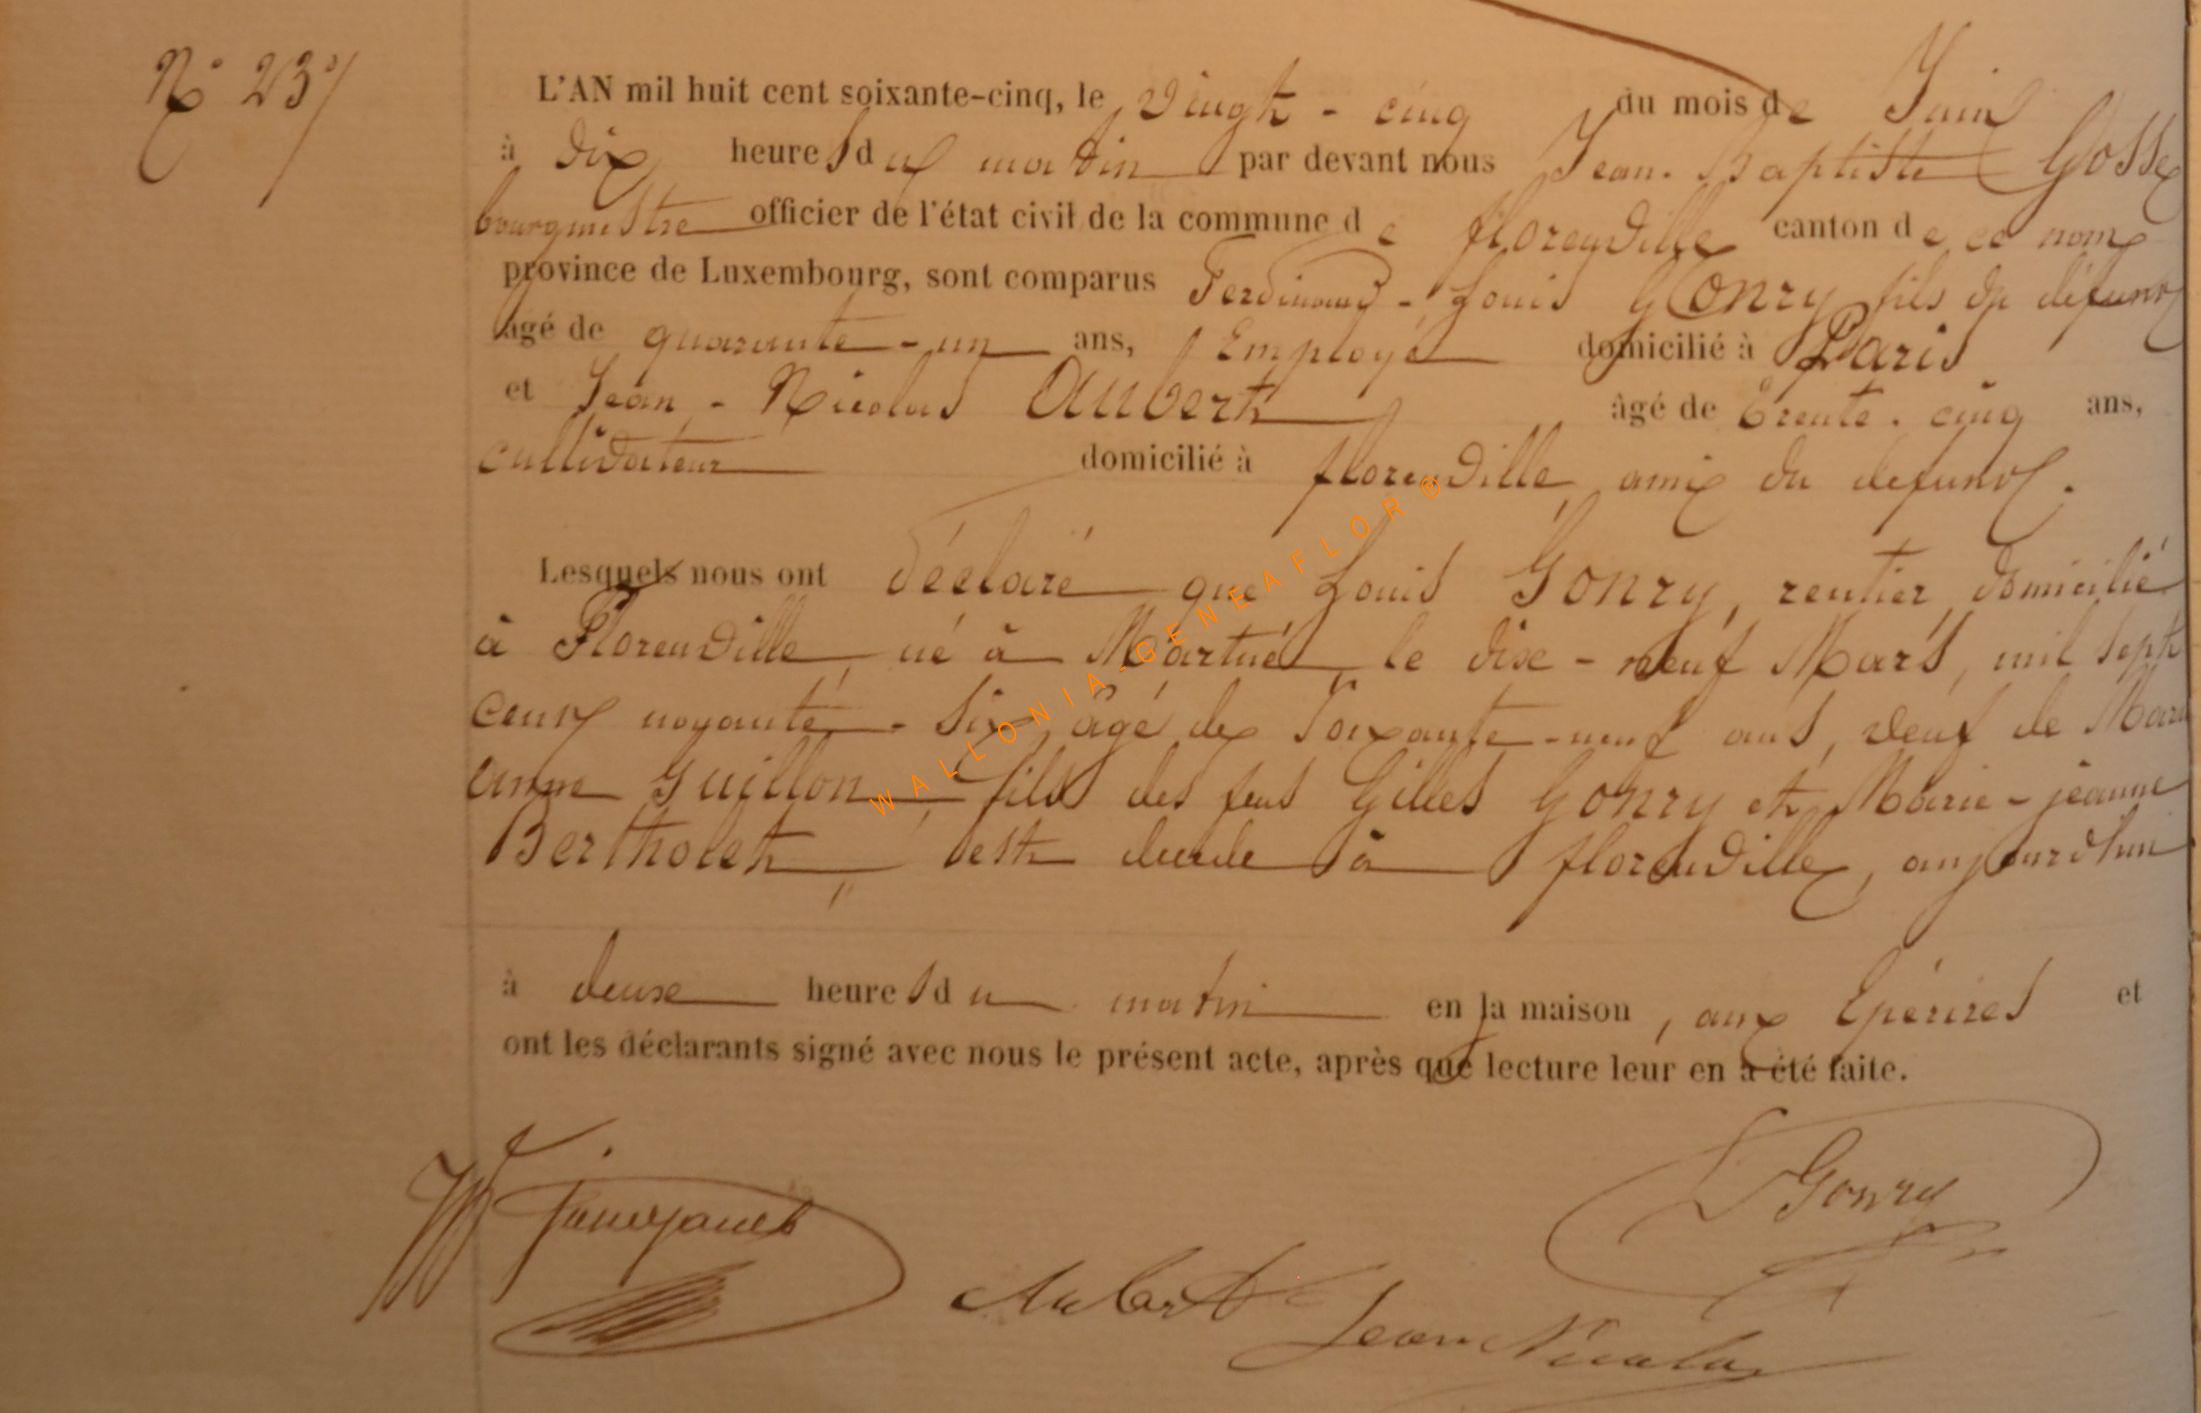 N° 23
L'AN mil huit cent soixante-cinq, le vingt-cinq du mois de Juin
à dix heures du matin par devant nous Jean-Baptiste Gosse
bourgmestre officier de l'état civil de la commune de florenville canton de ce nom
province de Luxembourg, sont comparus Ferdinand-Louis Gonry fils du défunt
âgé de quarante-un ans, Employé domicilié à Paris
et Jean-Nicolas Aubert âgé de trente-cinq ans,
cultivateur domicilié à florenville amis du defunt.
Lesquels nous ont déclaré que Louis Gonry, rentier domicilié
à Florenville, né à Martué, le dix-neuf Mars, mil sept
cent noyante-six, âgé de soixante-neuf ans, veuf de Marie
anne Guillon, fils des feus Gilles Gonry et Marie-jeanne
Bertholet, est decede à florenville, aujourdhui
à deux heures du matin en la maison, aux Epérires et
ont les déclarants signé avec nous le présent acte, après que lecture leur en a été faite.
L Gonry
Aubert Jean Nicolas
WALLONIA-GENEAFLOR ®